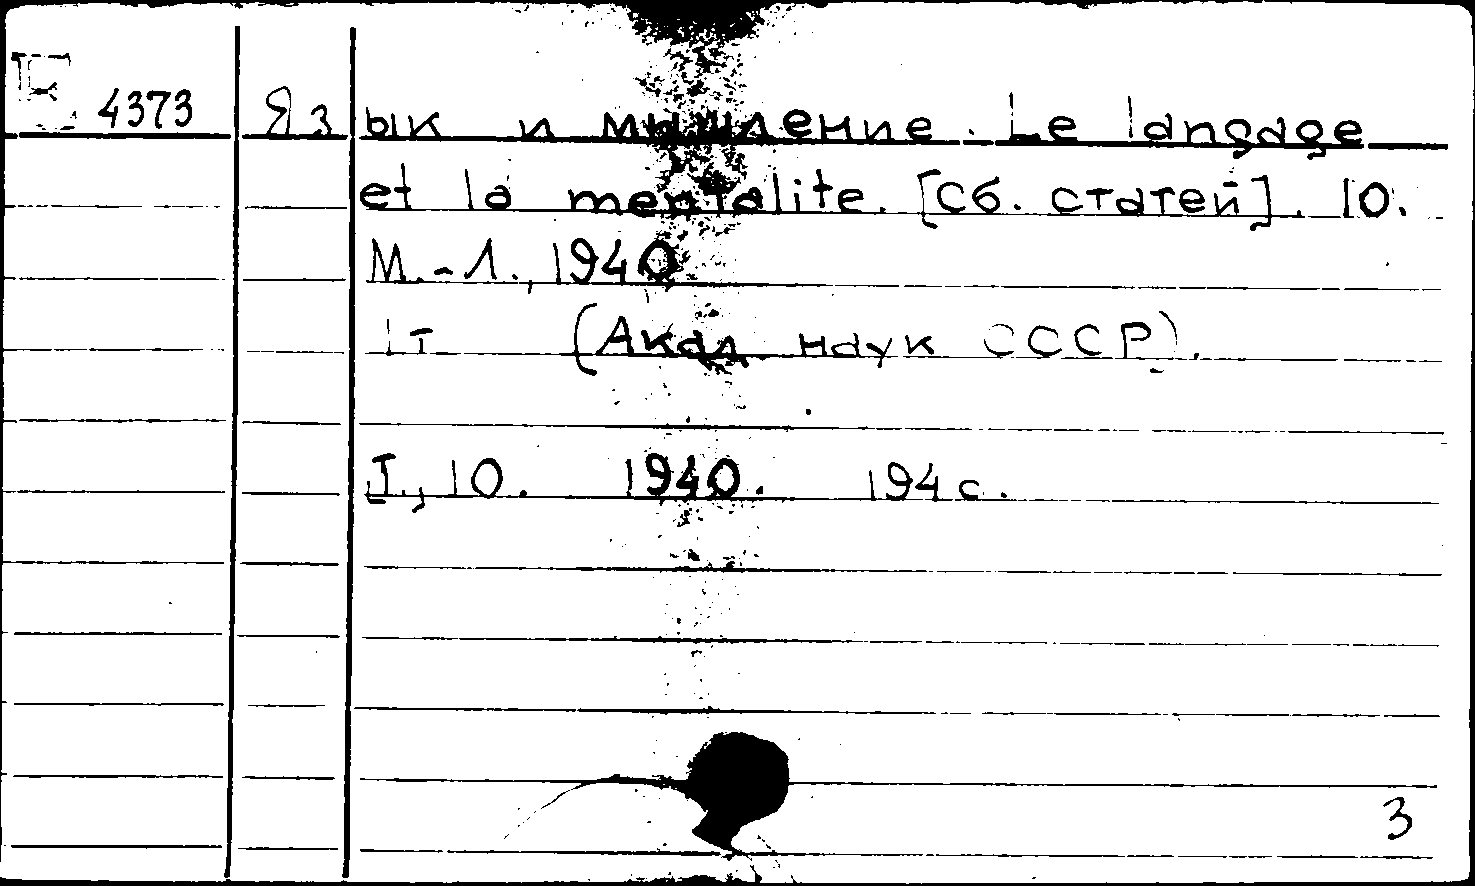 E 4373 Язык и мышление. Le langage
et la mentalite. [Сб. статей]. 10.
М.-Л., 1940
1т (Акад. наук СССР).
I., 10. 1940. 194 с.
3